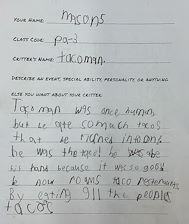 YOUR NAME: macons
CLASS CODE: pa-3
CRITTER'S NAME: tacoman
DESCRIBE AN EVENT, SPECIAL ABILITY, PERSONALITY OR ANYTHING
ELSE YOU WANT ABOUT YOUR CRITTER:
Tacoman was once human
but he ate so much tacos
that he turned into one
he was the taco! he ate
his hand because it was so good
& now roams taco restaurants
By eating all the people's
tacos